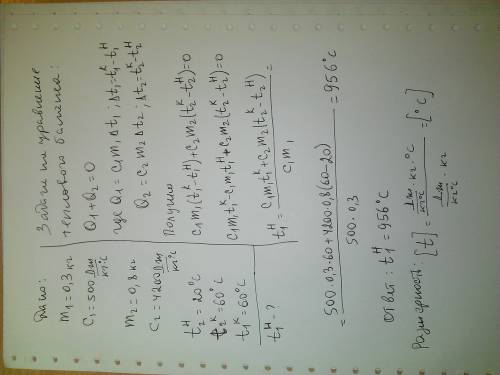 Дано:
m₁ = 0,3 кг
c₁ = 500 Дж/кг°С
m₂ = 0,8 кг
c₂ = 4200 Дж/кг°С
t₂ᴴ = 20°С
t₂ᴷ = 60°С
t₁ᴷ = 60°С
t₁ᴴ - ?
Задачи на уравнение
теплового баланса:
Q₁ + Q₂ = 0
где Q₁ = c₁m₁Δt₁; Δt₁ = t₁ᴷ - t₁ᴴ
Q₂ = c₂m₂Δt₂; Δt₂ = t₂ᴷ - t₂ᴴ
Получим
c₁m₁(t₁ᴷ - t₁ᴴ) + c₂m₂(t₂ᴷ - t₂ᴴ) = 0
c₁m₁t₁ᴷ - c₁m₁t₁ᴴ + c₂m₂(t₂ᴷ - t₂ᴴ) = 0
t₁ᴴ = (c₁m₁t₁ᴷ + c₂m₂(t₂ᴷ - t₂ᴴ)) / c₁m₁ =
= (500·0,3·60 + 4200·0,8(60-20)) / 500·0,3 = 956°С
Ответ: t₁ᴴ = 956°С
Размерность: [t] = (Дж/кг°С · кг · °С) / (Дж/кг°С · кг) = [°С]